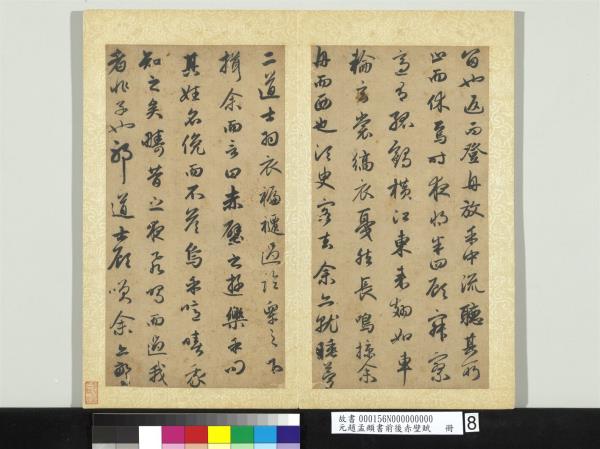 留也返而登舟放乎中流聽其所
止而休焉時夜將半四顧寂寥
適有孤鶴橫江東來翅如車
輪玄裳縞衣戛然長鳴掠余
舟而西也須臾客去余亦就睡夢
二道士羽衣蹁躚過臨皋之下
揖余而言曰赤壁之遊樂乎問
其姓名俛而不答嗚呼噫嘻我
知之矣疇昔之夜飛鳴而過我
者非子也耶道士顧笑余亦驚
故書 000156N000000000
元趙孟頫書前後赤壁賦 冊
8